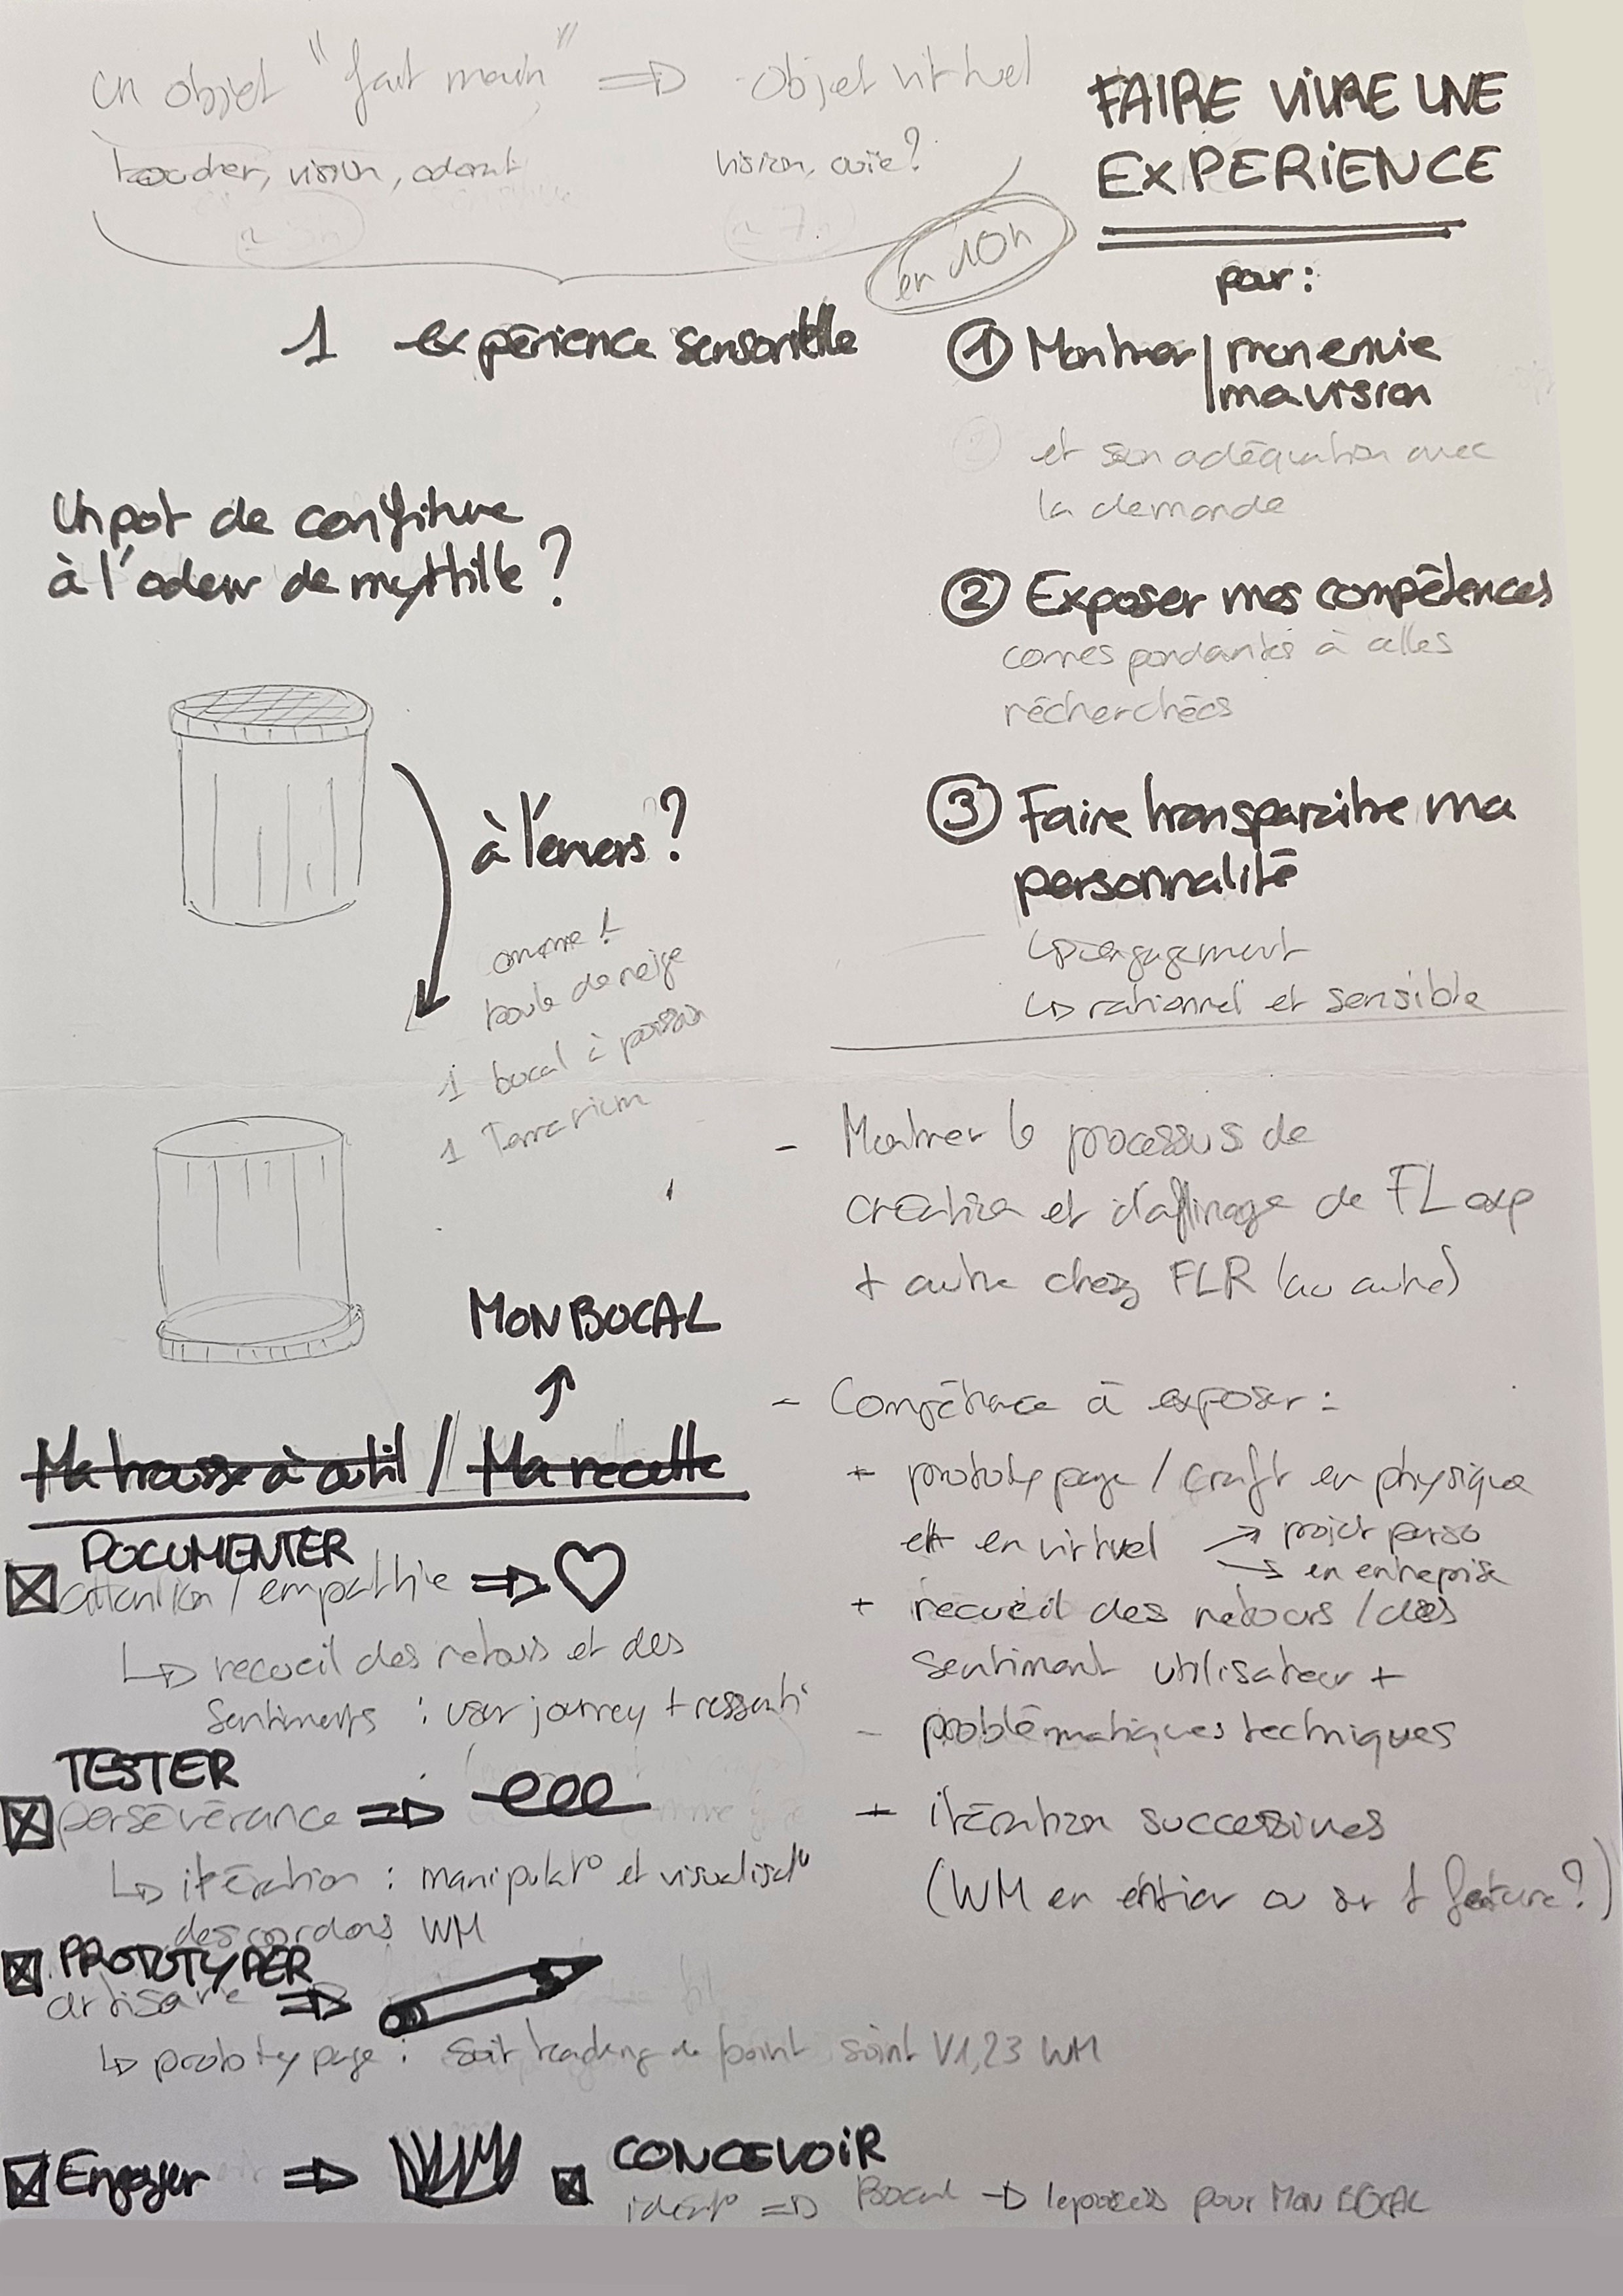 un objet "fait main" => objet virtuel
toucher, vision, odorat
vision, ouïe?
en 10h
1 expérience sensorielle
FAIRE VIVRE UNE
EXPERIENCE
pour :
① Montrer | mon envie
ma vision
et son adéquation avec
la demande
② Exposer mes compétences
correspondantes à celles
recherchées
③ Faire transparaitre ma
personnalité
↳ engagement
↳ rationnel et sensible
Un pot de confiture
à l'odeur de myrtille ?
à l'envers ?
comme 1
boule de neige
1 bocal à poisson
1 Terrarium
- Montrer le processus de
création et d'affinage de FL exp
+ autre chez FLR (ou autre)
- Compétence à exposer :
+ prototypage / craft en physique
et en virtuel → projet perso
→ en entreprise
+ recueil des retours / des
sentiment utilisateur +
- problématiques techniques
+ itération successives
(WM en entier ou sur 1 feature?)
MON BOCAL
Ma trousse à outil / Ma recette
DOCUMENTER
attention / empathie =>
↳ recueil des retours et des
sentiments : user journey + ressenti
TESTER
persévérance =>
↳ itération : manipulat° et visualisat°
des cordons WM
PROTOTYPER
artisane =>
↳ prototypage : soit de point soint V1,23 WM
Engager =>
CONCEVOIR
ideat° => Bocal → le process pour MON BOCAL